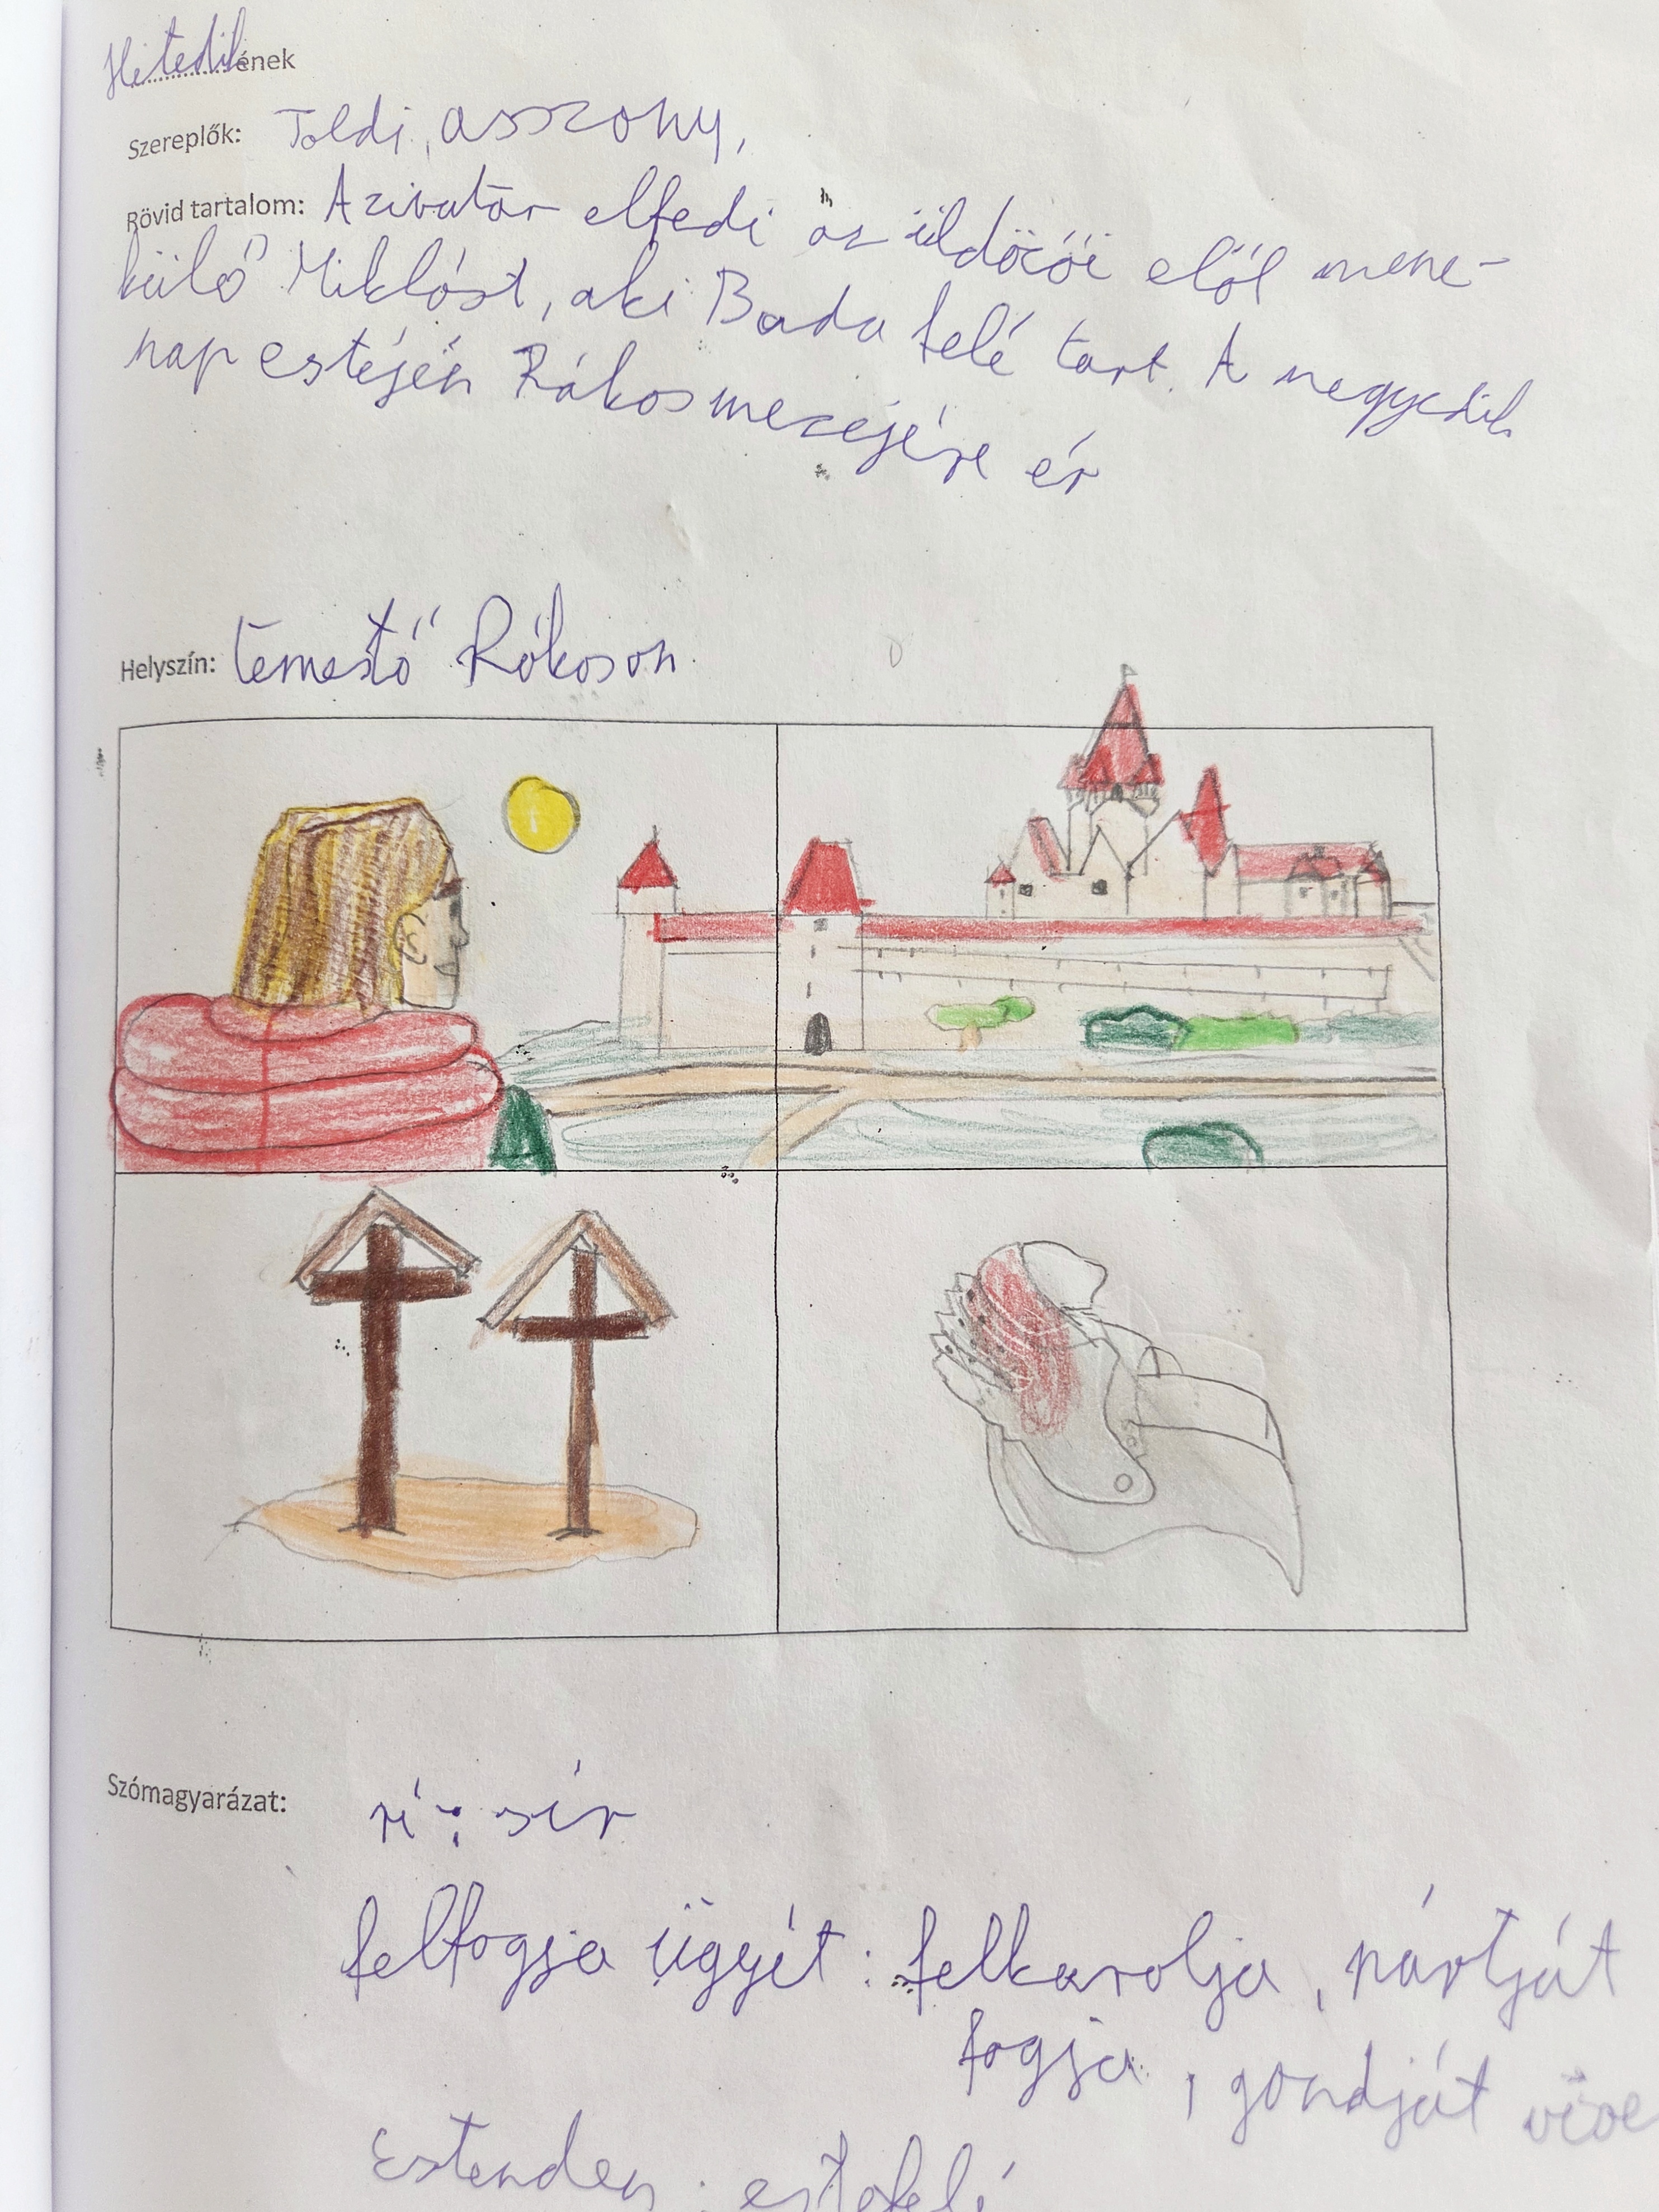 Hetedik ének
Szereplők: Toldi, asszony,
Rövid tartalom: A zivatar elfedi az üldözői elől mene-
külő Miklóst, aki Buda felé tart. A negyedik
nap estéjén Rákos mezejére ér
Helyszín: temető Rákoson
Szómagyarázat: rí: sír
felfogja ügyét: felkarolja, pártját
fogja, gondját
Estenden: estefelé